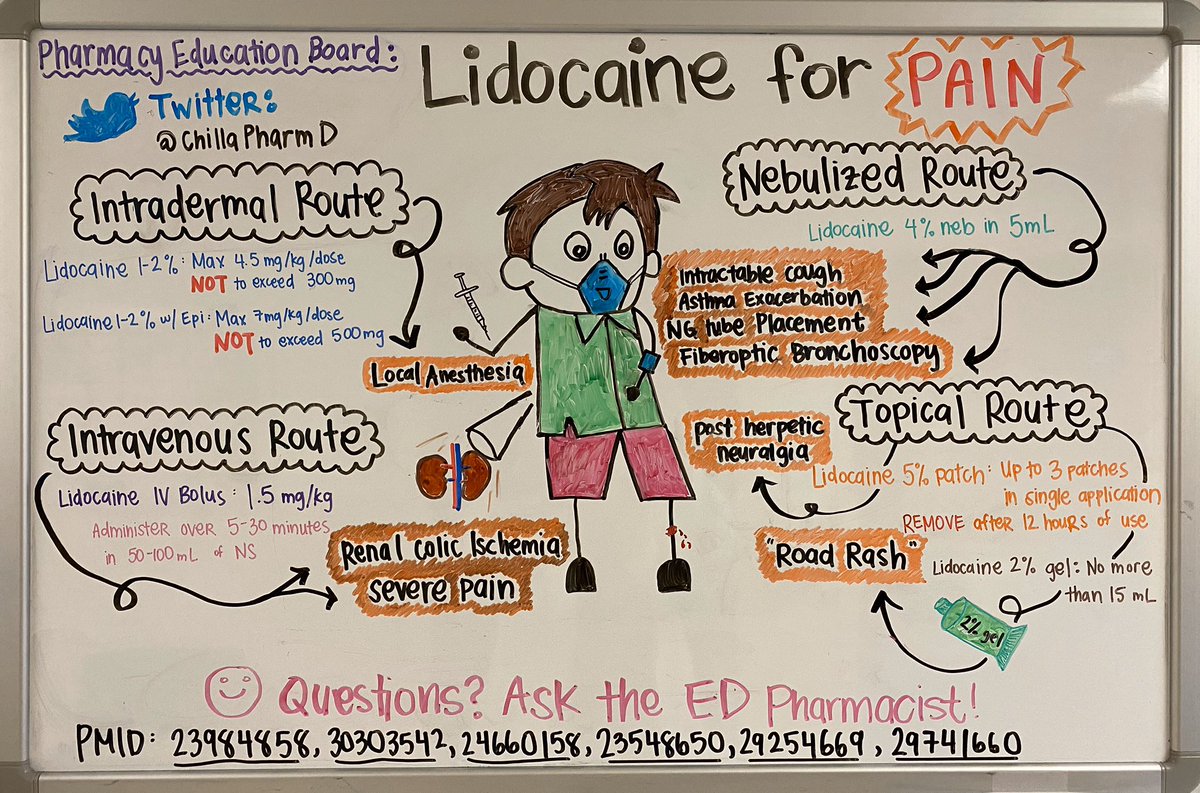 Pharmacy Education Board:
Twitter:
@ChillaPharmD
Lidocaine for PAIN
Intradermal Route
Lidocaine 1-2%: Max 4.5mg/kg/dose
NOT to exceed 300mg
Lidocaine 1-2% w/ Epi: Max 7mg/kg/dose
NOT to exceed 500mg
Local Anesthesia
Intravenous Route
Lidocaine IV Bolus: 1.5 mg/kg
Administer over 5-30 minutes
in 50-100mL of NS
Renal colic Ischemia
severe pain
Nebulized Route
Lidocaine 4% neb in 5mL
Intractable cough
Asthma Exacerbation
NG tube Placement
Fiberoptic Bronchoscopy
Topical Route
post herpetic
neuralgia
Lidocaine 5% patch: Up to 3 patches
in single application
REMOVE after 12 hours of use
"Road Rash"
Lidocaine 2% gel: No more
than 15 mL
2% gel
Questions? Ask the ED Pharmacist!
PMID: 23984858, 30303542, 24660158, 23548650, 29254669, 29741660